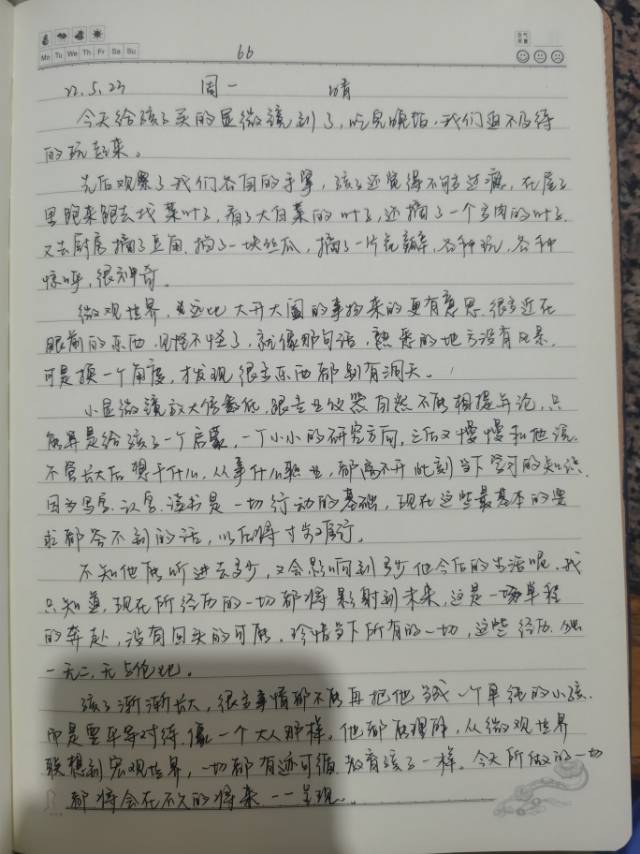 Mo Tu We Th Fr Sa Su
66
22.5.23 周一 晴
今天给孩子买的显微镜到了，吃完晚饭，我们迫不及待
的玩起来。
先后观察了我们各自的手掌，孩子还觉得不够过瘾，在屋子
里跑来跑去找菜叶子，看了大白菜的叶子，还摘了一个多肉的叶子，
又去厨房摘了豆角，掐了一块丝瓜，摘了一片花瓣，各种玩，各种
惊呼，很神奇。
微观世界，远比大开大阖的事物来的更有意思，很多近在
眼前的东西，见怪不怪了，就像那句话，熟悉的地方没有风景，
可是换一个角度，才发现很多东西都别有洞天。
小显微镜放大倍数低，跟专业仪器自然不能相提并论，只
能算是给孩子一个启蒙，一个小小的研究方向，之后又慢慢和他说
不管长大后想干什么，从事什么职业，都离不开此刻当下学习的知识，
因为写字、认字、读书是一切行动的基础，现在这些最基本的要
求都答不到的话，以后将寸步难行。
不知他能听进去多少，又会影响到多少他今后的生活呢，我
只知道，现在所经历的一切都将影射到未来，这是一场单程
的奔赴，没有回头的可能，珍惜当下所有的一切，这些经历，独
一无二，无与伦比。
孩子渐渐长大，很多事情都不能再把他当成一个单纯的小孩，
而是要平等对待，像一个大人那样，他都能理解，从微观世界
联想到宏观世界，一切都有迹可循，教育孩子一样，今天所做的一切
都将会在不久的将来一一呈现。